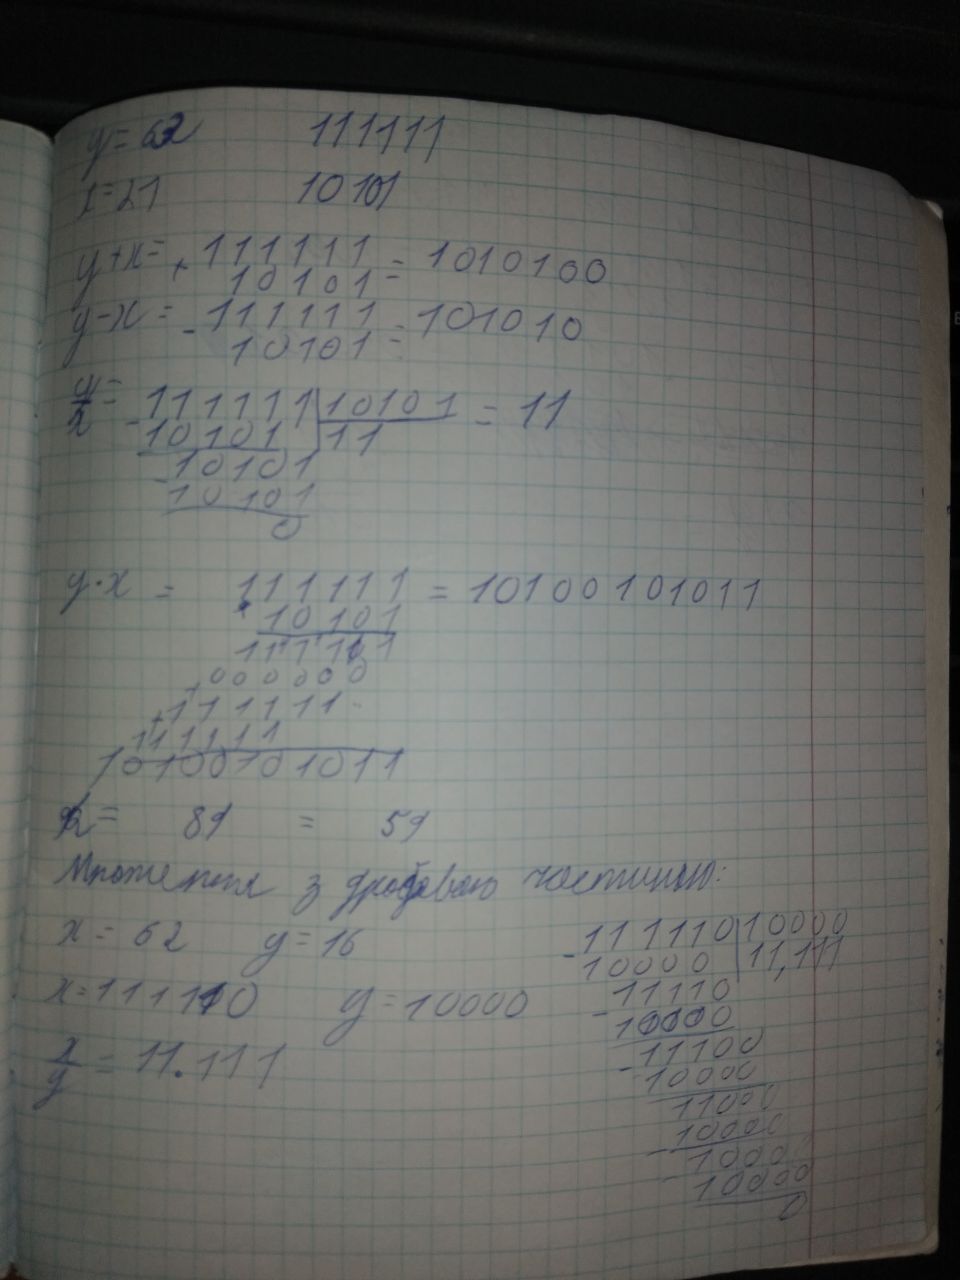 y = 63 111111
x = 21 10101
y+x= + 111111 = 1010100
10101
y-x= - 111111 = 101010
10101
y/x = - 111111 | 10101 = 11
10101 | 11
- 10101
10101
0
y·x = 111111 = 10100101011
· 10101
111111
+ 000000
+ 111111
+ 111111
10100101011
= 89 = 59
з дробовою частиною:
x = 62 y = 16
x = 111110 y = 10000
x/y = 11.111
- 111110 | 10000
10000 | 11,111
- 11110
10000
- 11100
10000
11000
- 10000
- 10000
10000
0